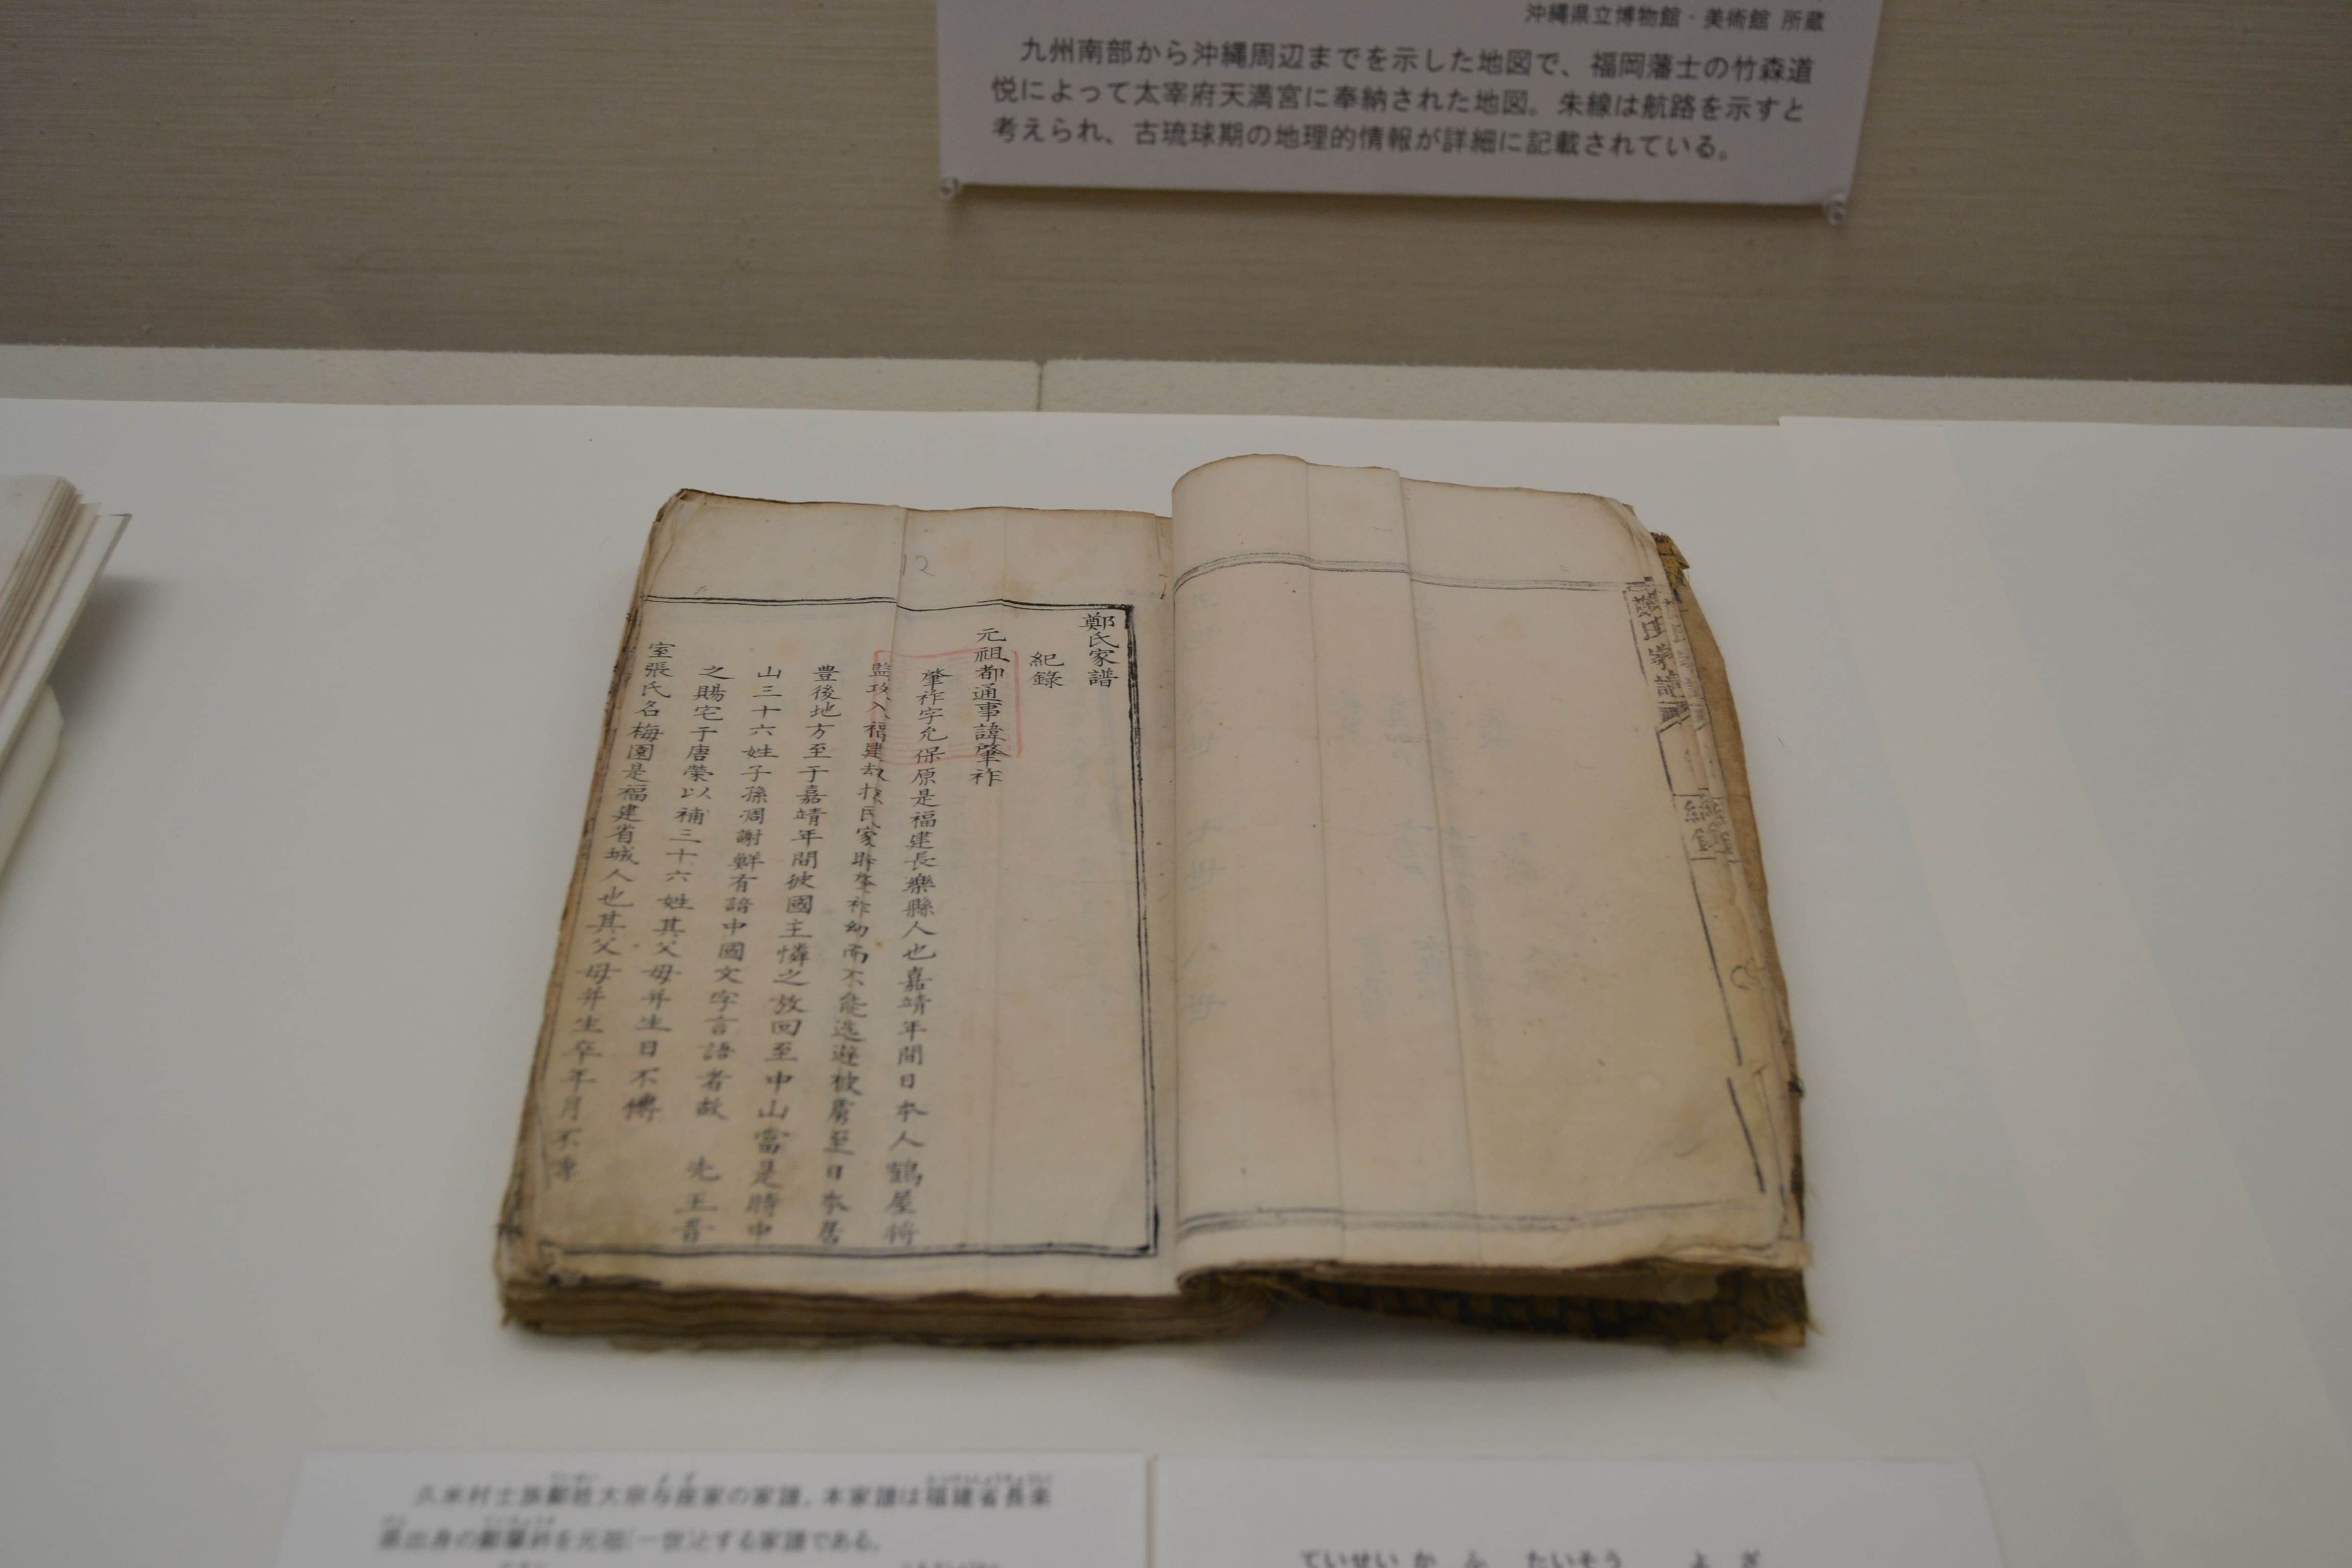 沖縄県立博物館・美術館 所蔵
九州南部から沖縄周辺までを示した地図で、福岡藩士の竹森道
悦によって太宰府天満宮に奉納された地図。朱線は航路を示すと
考えられ、古琉球期の地理的情報が詳細に記載されている。
12
鄭氏家譜
紀錄
元祖都通事諱肇祚
肇祚字允保原是福建長樂縣人也嘉靖年間日本人鶴屋將
監攻入福建劫掠民家時肇祚幼而不能逃避被虜至日本居
豊後地方至于嘉靖年間彼國主憐之放回至中山當是時中
山三十六姓子孫凋謝鮮有諳中國文字言語者故 先王
之賜宅于唐榮以補三十六姓其父母并生日不傳
室張氏名梅園是福建省城人也其父母并生卒年月不傳
紀錄
久米村士族鄭姓大宗与座家の家譜。本家譜は福建省長楽
県出身の鄭肇祚を元祖(一世)とする家譜である。
ていせいかふ たいそう よざ